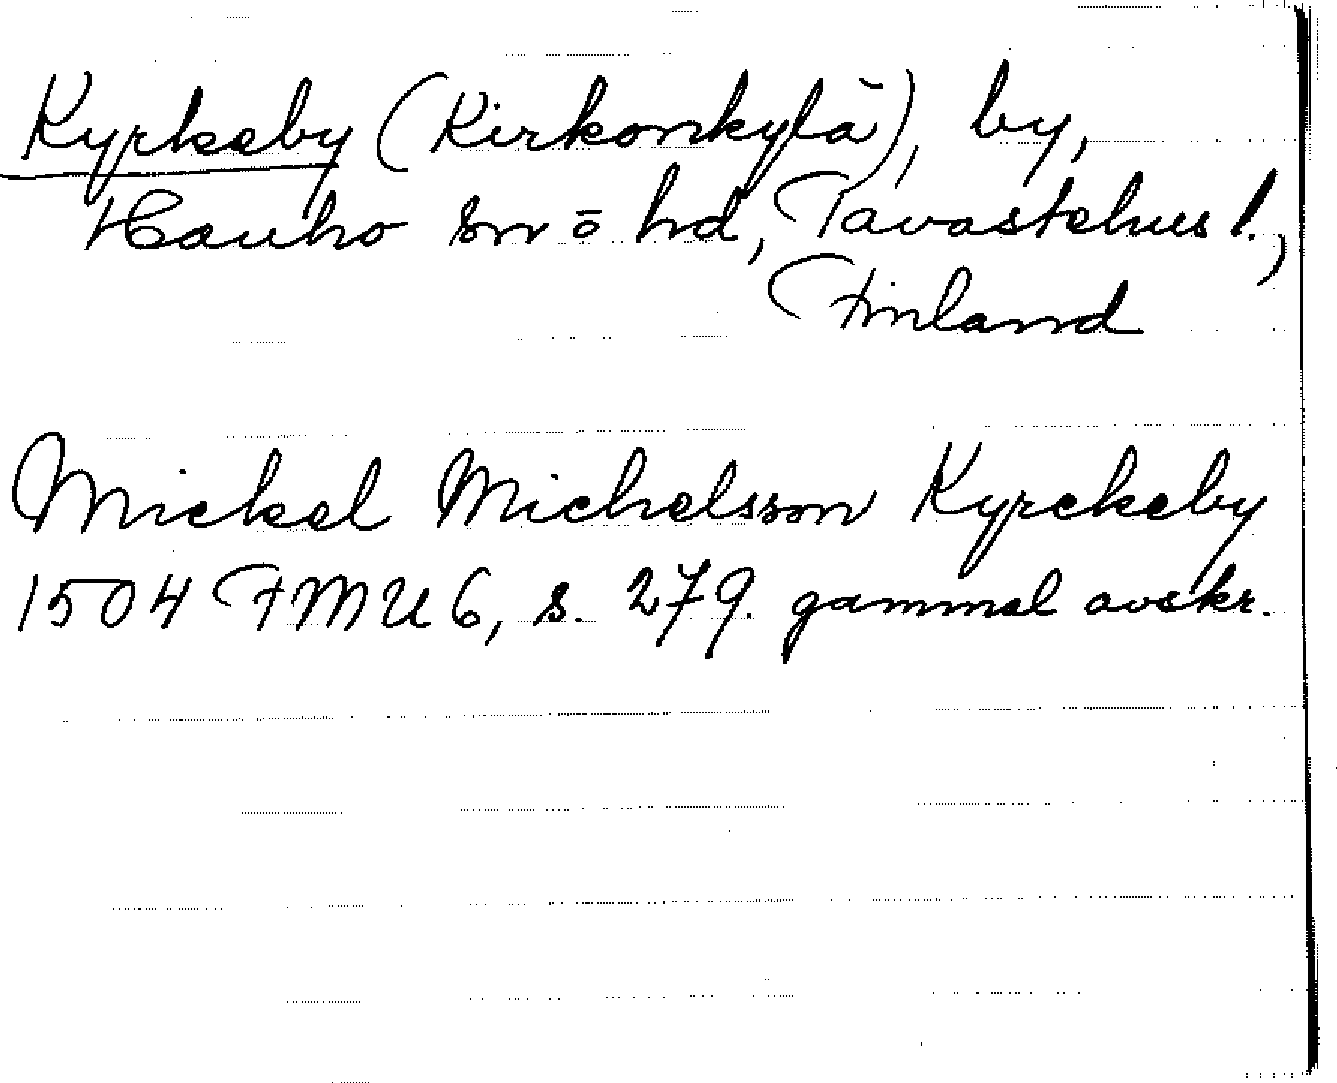 Kyrkeby (Kirkonkylä), by,
Hauho sn ö hd, Tavastehus l.,
Finland
Mickel Michelsson Kyrckeby
1504 FMU 6, s. 279. gammal avskr.